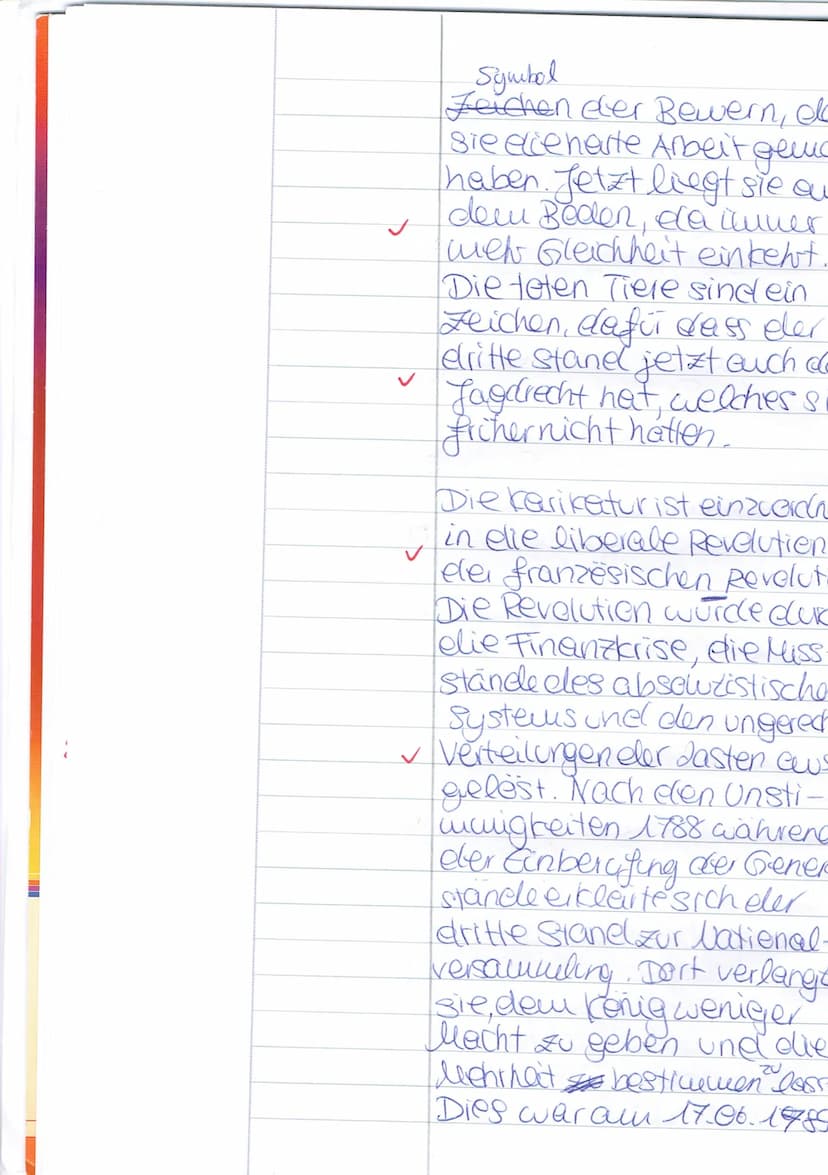 Symbol
Zeichen der Bewern, d
sie die harte Arbeit gem
haben. Jetzt liegt sie au
dem Boden, da immer
mehr Gleichheit einkehrt.
Die toten Tiere sind ein
Zeichen, dafür dass der
dritte Stand jetzt auch d
Jagdrecht hat, welches s
früher nicht hatten.
Die Karikatur ist einzuordn
in die liberale Revolution
der französischen Revolut
Die Revolution wurde dur
die Finanzkrise, die Miss-
stände des absolutistische
Systems und den ungerech
Verteilungen der Lasten aus
gelöst. Nach den Unsti-
mmigkeiten 1788 während
der Einberufung der Gener
stände erklärte sich der
dritte Stand zur National-
versammlung. Dort verlangt
sie, dem König weniger
Macht zu geben und die
Mehrheit bestimmen zu lass
Dies war am 17.06.1789